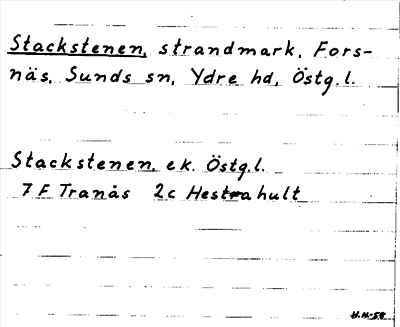 Stackstenen, strandmark, Fors-
näs, Sunds sn, Ydre hd, Östg.l.
Stackstenen, ek. Östg.l.
7 F Tranås 2c Hestrahult
H.H-58